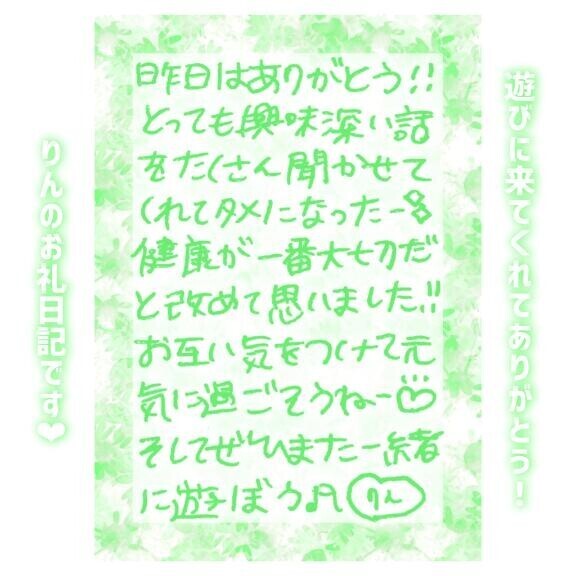 遊びに来てくれてありがとう！
昨日はありがとう!!
とっても興味深い話
をたくさん聞かせて
くれてタメになったー
健康が一番大切だ
と改めて思いました!!
お互い気をつけて元
気に過ごそうねー♡
そしてぜひまた一緒
に遊ぼう♬ りん
りんのお礼日記です❤